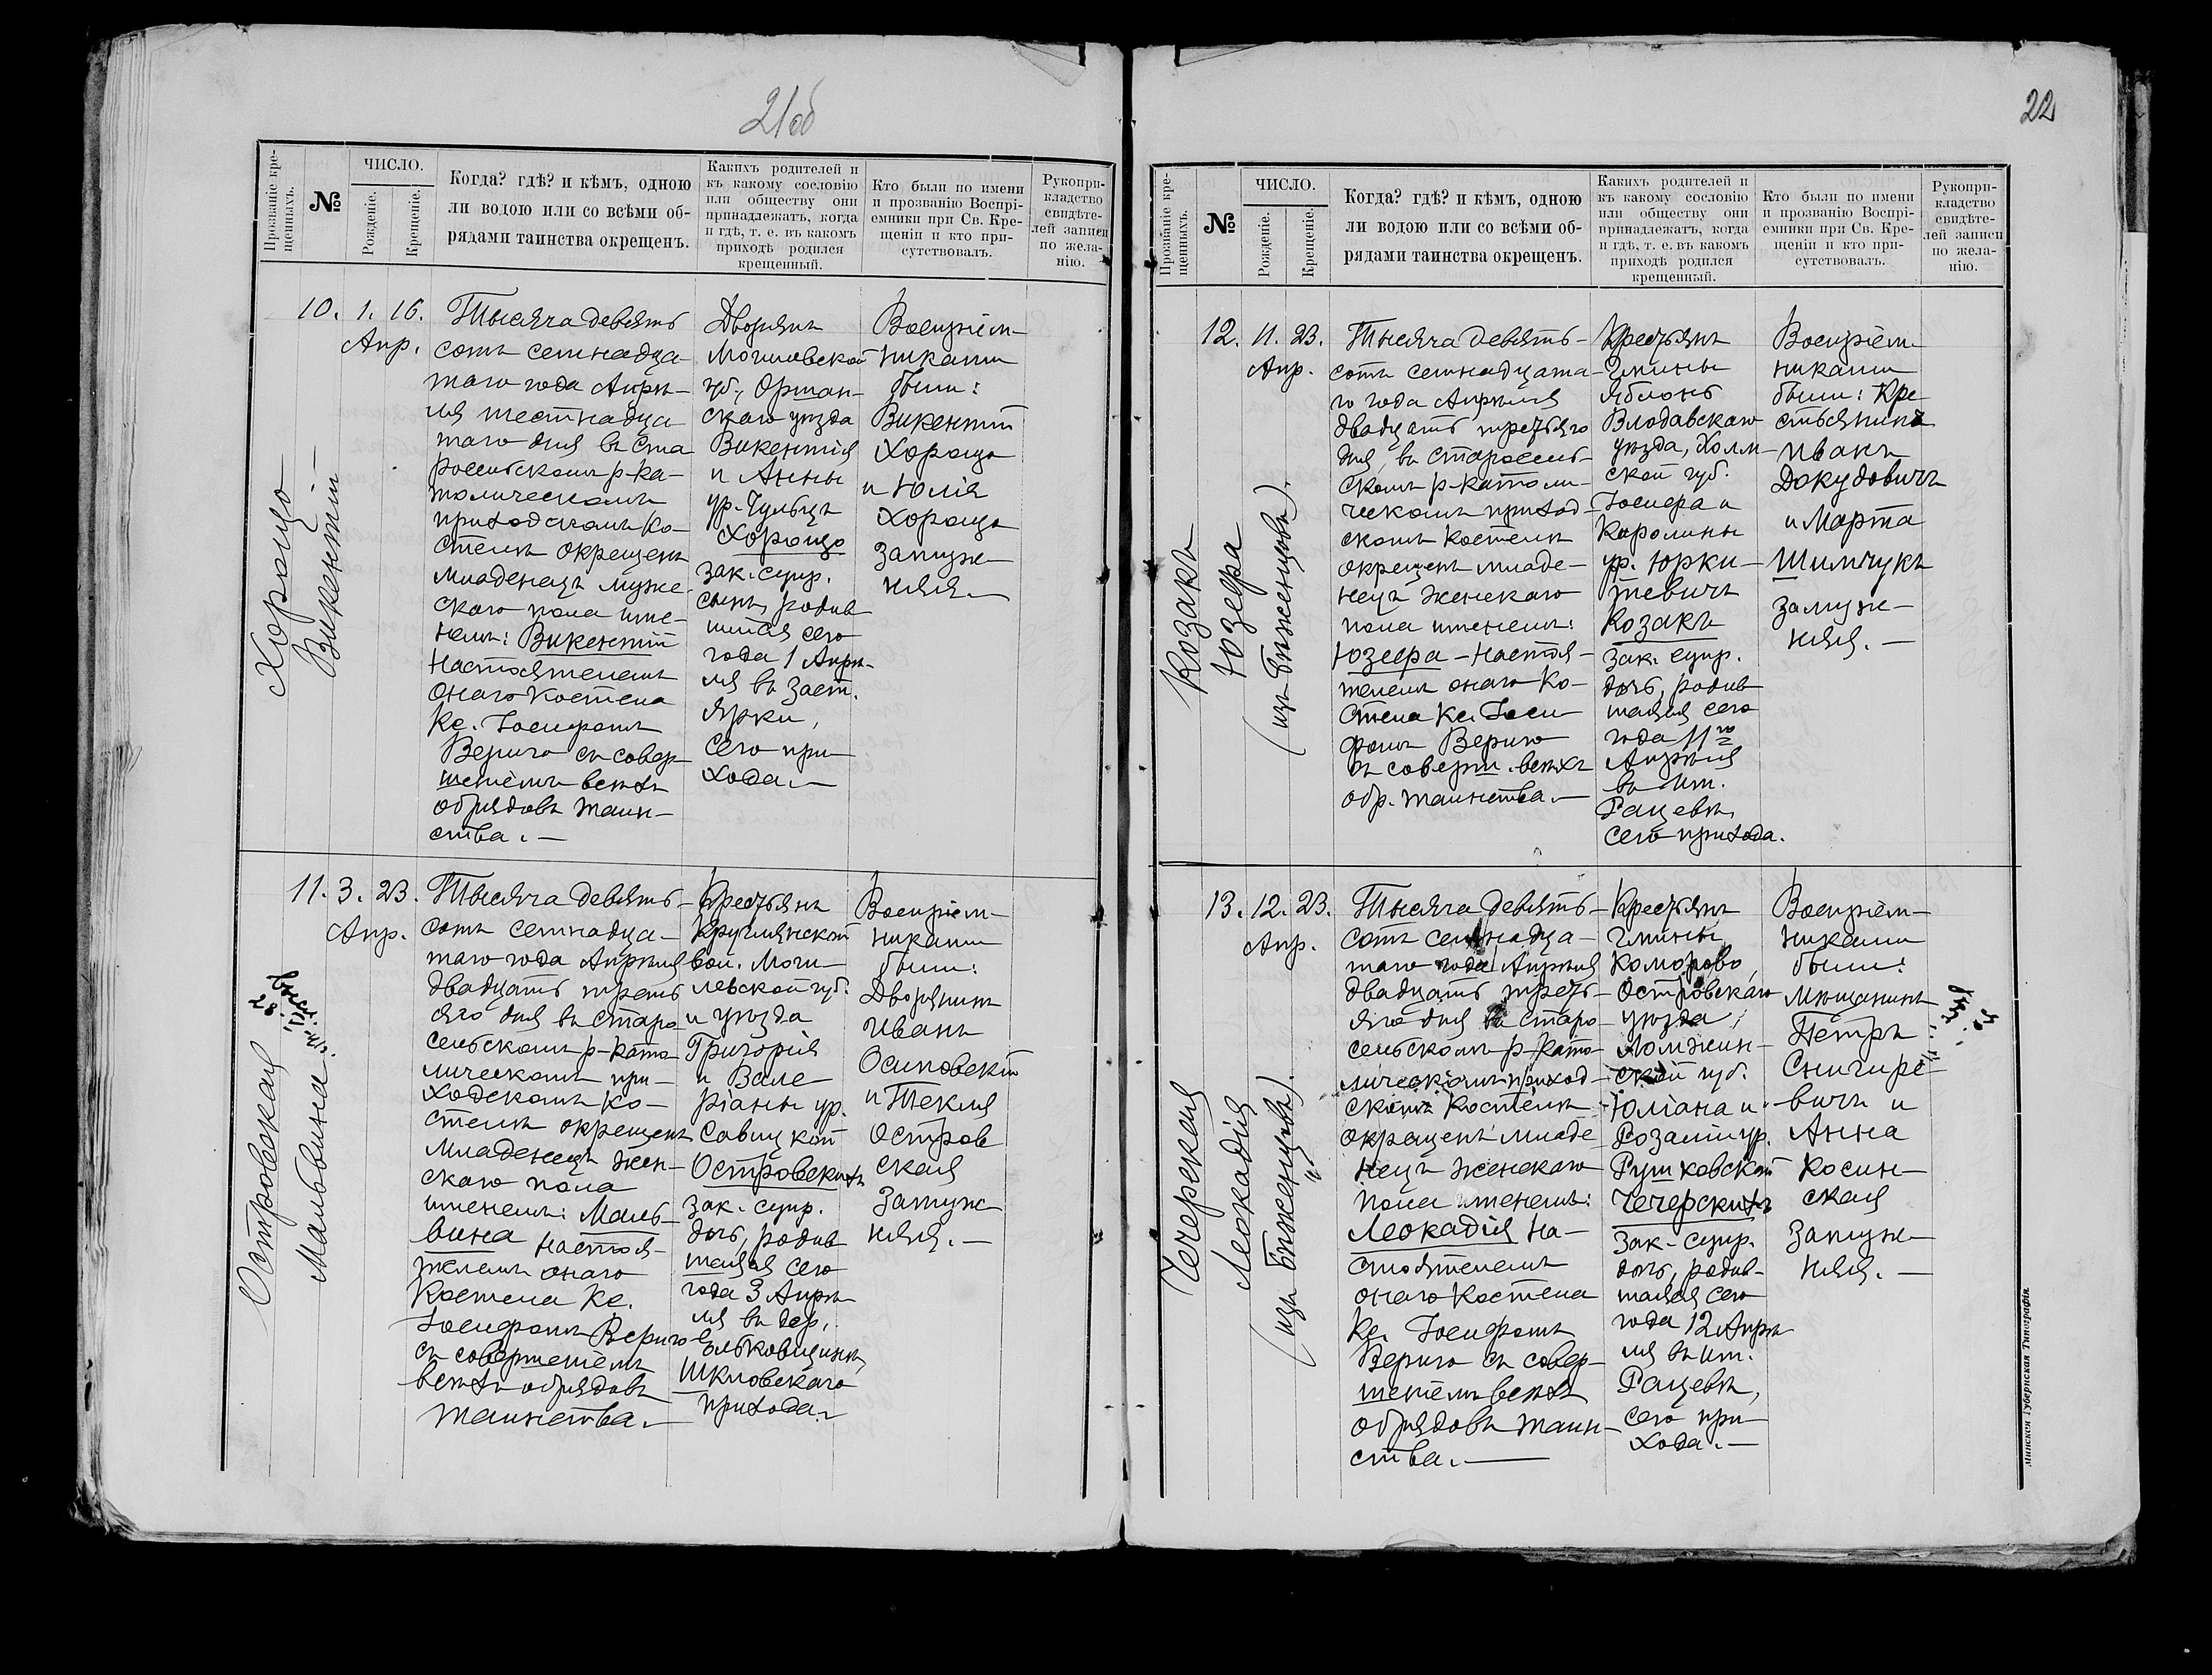 21об
Прозваніе кре-
щенныхъ.
№
ЧИСЛО.
Рожденіе.
Крещеніе.
Когда? гдѣ? и кѣмъ, одною
ли водою или со всѣми об-
рядами таинства окрещенъ.
Какихъ родителей и
къ какому сословію
или обществу они
принадлежатъ, когда
и гдѣ, т. е. въ какомъ
приходѣ родился
крещенный.
Кто были по имени
и прозванію Воспрі-
емники при Св. Кре-
щеніи и кто при-
сутствовалъ.
Рукопри-
кладство
свидѣте-
лей записи
по жела-
нію.
Хорощо
Викентій
10. 1. 16.
Апр.
Тысяча девять
сотъ семнадца-
таго года Апрѣ-
ля шестнадца
таго дня въ Ста
росельскомъ р-ка-
толическомъ
приходскомъ ко-
стелѣ окрещенъ
младенецъ муже-
скаго пола име-
немъ: Викентій
настоятелемъ
онаго костела
Кс. Іосифомъ
Вериго съ совер-
шеніемъ всѣхъ
обрядовъ таин-
ства. —
Дворянъ
Могилевской
губ., Оршан-
скаго уѣзда
Викентія
и Анны
ур.
Хорощо
зак. супр.
сынъ, родив
шійся сего
года 1 Апрѣ-
ля въ заст.
Ярки,
сего при-
хода. —
Воспріем-
никами
были:
Викентій
Хорощо
и Юлія
Хорощо
замуж-
няя. —
Островская
Мальвина
11. 3. 23.
Апр.
Тысяча девять-
сотъ семнадца-
таго года Апрѣля
двадцать треть
яго дня въ Старо
сельскомъ р-като
лическомъ при-
ходскомъ ко-
стелѣ окрещенъ
младенецъ жен-
скаго пола
именемъ: Маль-
вина настоя-
телемъ онаго
костела Кс.
Іосифомъ Вериго
съ совершеніемъ
всѣхъ обрядовъ
таинства. —
Крестьянъ
Круглянской
вол. Моги-
левской губ.
и уѣзда
Григорія
и Вале-
ріаны ур.
Савицкой
Островскихъ
зак. супр.
дочь, родив
шаяся сего
года 3 Апрѣ
ля въ дер.
Ельковщинѣ,
Шкловскаго
прихода. —
Воспріем-
никами
были:
Дворянинъ
Иванъ
Осиповскій
и Текля
Остров
ская
замуж-
няя. —
22
Прозваніе кре-
щенныхъ.
№
ЧИСЛО.
Рожденіе.
Крещеніе.
Когда? гдѣ? и кѣмъ, одною
ли водою или со всѣми об-
рядами таинства окрещенъ.
Какихъ родителей и
къ какому сословію
или обществу они
принадлежатъ, когда
и гдѣ, т. е. въ какомъ
приходѣ родился
крещенный.
Кто были по имени
и прозванію Воспрі-
емники при Св. Кре-
щеніи и кто при-
сутствовалъ.
Рукопри-
кладство
свидѣте-
лей записи
по жела-
нію.
Козакъ
Юзефа
(изъ бѣженцовъ).
12. 11. 23.
Апр.
Тысяча девять-
сотъ семнадцата-
го года Апрѣля
двадцать третьяго
дня, въ Старосель-
скомъ р-католи-
ческомъ приход-
скомъ костелѣ
окрещенъ младе-
нецъ женскаго
пола именемъ:
Юзефа - настоя-
телемъ онаго ко-
стела Кс. Іоси-
фомъ Вериго
съ соверш. всѣхъ
обр. таинства. —
Крестьянъ
гмины
Яблонь
Влодавскаго
уѣзда, Холм-
ской губ.
Іосифа и
Каролины
ур. Юрки-
тевичъ
Козакъ
зак. супр.
дочь, родив
шаяся сего
года 11го
Апрѣля
въ им.
Рацевѣ,
сего прихода.
Воспріем-
никами
были: Кре
стьянинъ
Иванъ
Докудовичъ
и Марта
Шимчукъ
замуж-
няя. —
Чечерская
Леокадія
(изъ бѣженцевъ).
13. 12. 23.
Апр.
Тысяча девять-
сотъ семнадца-
таго года Апрѣля
двадцать треть-
яго дня въ Старо-
сельскомъ р-като-
лическомъ приход-
скомъ костелѣ
окрещенъ младе
нецъ женскаго
пола именемъ:
Леокадія на-
стоятелемъ
онаго костела
Кс. Іосифомъ
Вериго съ совер-
шеніемъ всѣхъ
обрядовъ таин-
ства. —
Крестьянъ
гмины
Коморово,
Островскаго
уѣзда,
Ломжин-
ской губ.
Юліана и
Розаліи ур.
Рушковской
Чечерскихъ
зак. супр.
дочь, родив-
шаяся сего
года 12 Апрѣ
ля въ им.
Рацевѣ,
сего при-
хода. —
Воспріем-
никами
были:
Мѣщанинъ
Петръ
Снигире
вичъ и
Анна
Косин-
ская
замуж-
няя. —
Минская Губернская Типографія.